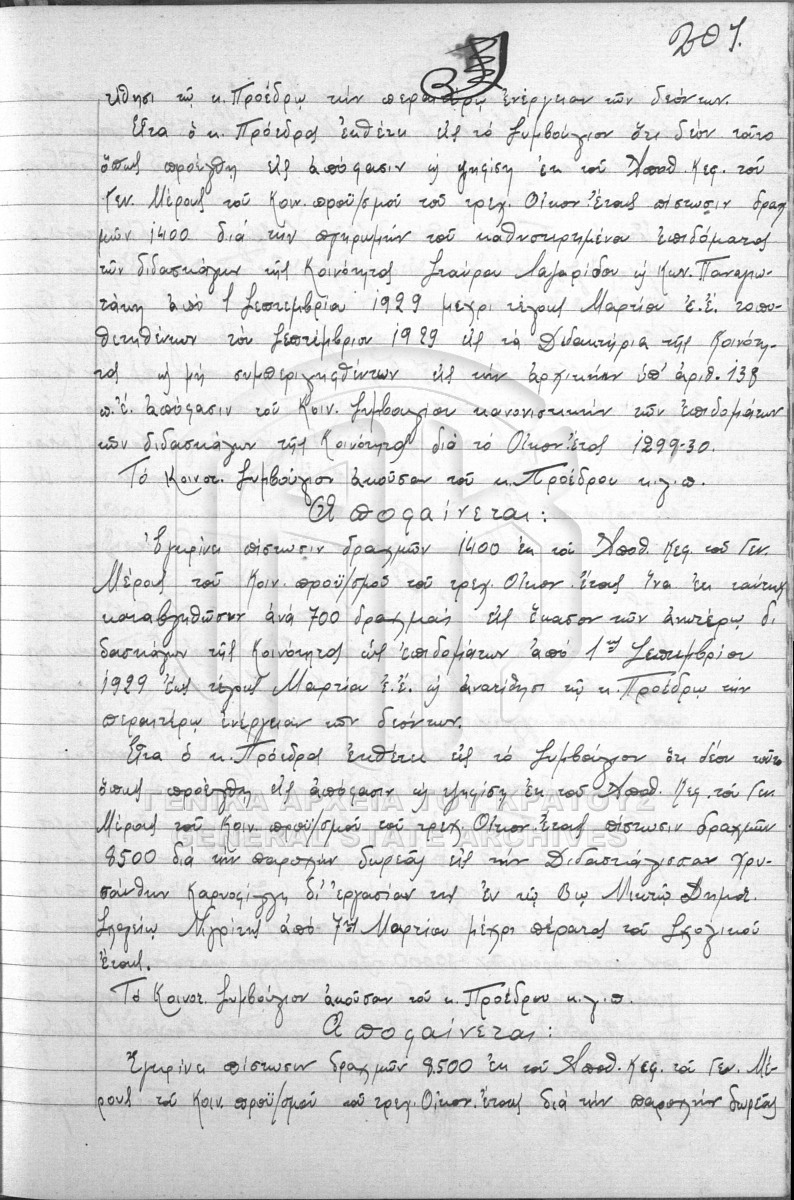 201.
τίθησι τῷ κ. Προέδρῳ τὴν περαιτέρω ἐνέργειαν τῶν δεόντων.
Εἶτα ὁ κ. Πρόεδρος ἐκθέτει εἰς τὸ Συμβούλιον ὅτι δέον τοῦτο
ὅπως προέλθῃ εἰς ἀπόφασιν ᾗ ψηφίσῃ ἐκ τοῦ Ἀποθ. Κεφ. τοῦ
Γεν. Μέρους τοῦ Κοιν. προϋ/σμοῦ τοῦ τρεχ. Οἰκον. Ἔτους πίστωσιν δραχ
μῶν 1400 διὰ τὴν πληρωμὴν τοῦ καθυστερημένου ἐπιδόματος
τῶν διδασκάλων τῆς Κοινότητος Σταύρου Λαζαρίδου ᾗ Κων. Παναγιω-
τάκη ἀπὸ 1 Σεπτεμβρίου 1929 μέχρι τέλους Μαρτίου ἐ.ἔ. τοπο-
θετηθέντων τὸν Σεπτέμβριον 1929 εἰς τὰ Διδακτήρια τῆς Κοινότη-
τος ᾗ μὴ συμπεριληφθέντων εἰς τὴν ἀρχικὴν ὑπ' ἀριθ. 138
π.ἔ. ἀπόφασιν τοῦ Κοιν. Συμβουλίου κανονιστικὴν τῶν ἐπιδομάτων
τῶν διδασκάλων τῆς Κοινότητος διὰ τὸ Οἰκον. ἔτος 1299-30.
Τὸ Κοινοτ. Συμβούλιον ἀκοῦσαν τοῦ κ. Προέδρου κ.λ.π.
Ἀποφαίνεται:
Ἐγκρίνει πίστωσιν δραχμῶν 1400 ἐκ τοῦ Ἀποθ. Κεφ. τοῦ Γεν.
Μέρους τοῦ Κοιν. προϋ/σμοῦ τοῦ τρεχ. Οἰκον. Ἔτους ἵνα ἐκ ταύτης
καταβληθῶσιν ἀνὰ 700 δραχμαὶ εἰς ἕκαστον τῶν ἀνωτέρω δι
δασκάλων τῆς Κοινότητος ὡς ἐπιδομάτων ἀπὸ 1ης Σεπτεμβρίου
1929 ἕως τέλους Μαρτίου ἐ.ἔ. ᾗ ἀνατίθησι τῷ κ. Προέδρῳ τὴν
περαιτέρω ἐνέργειαν τῶν δεόντων.
Εἶτα ὁ κ. Πρόεδρος ἐκθέτει εἰς τὸ Συμβούλιον ὅτι δέον τοῦτο
ὅπως προέλθῃ εἰς ἀπόφασιν ᾗ ψηφίσῃ ἐκ τοῦ Ἀποθ. Κεφ. τοῦ Γεν.
Μέρους τοῦ Κοιν. προϋ/σμοῦ τοῦ τρεχ. Οἰκον. Ἔτους πίστωσιν δραχμῶν
8500 διὰ τὴν παροχὴν δωρεᾶς εἰς τὴν Διδασκάλισσαν Χρυ-
σάνθην δι' ἐργασίαν της ἐν τῷ Βῳ Μικτῷ Δημοτ.
Σχολείῳ Νιγρίτης ἀπὸ 7ης Μαρτίου μέχρι πέρατος τοῦ Σχολικοῦ
ἔτους.
Τὸ Κοινοτ. Συμβούλιον ἀκοῦσαν τοῦ κ. Προέδρου κ.λ.π.
Ἀποφαίνεται:
Ἐγκρίνει πίστωσιν δραχμῶν 8500 ἐκ τοῦ Ἀποθ. Κεφ. τοῦ Γεν. Μέ-
ρους τοῦ Κοιν. προϋ/σμοῦ τοῦ τρεχ. Οἰκον. ἔτους διὰ τὴν παροχὴν δωρεᾶς
ΓΕΝΙΚΑ ΑΡΧΕΙΑ ΤΟΥ ΚΡΑΤΟΥΣ
GENERAL STATE ARCHIVES